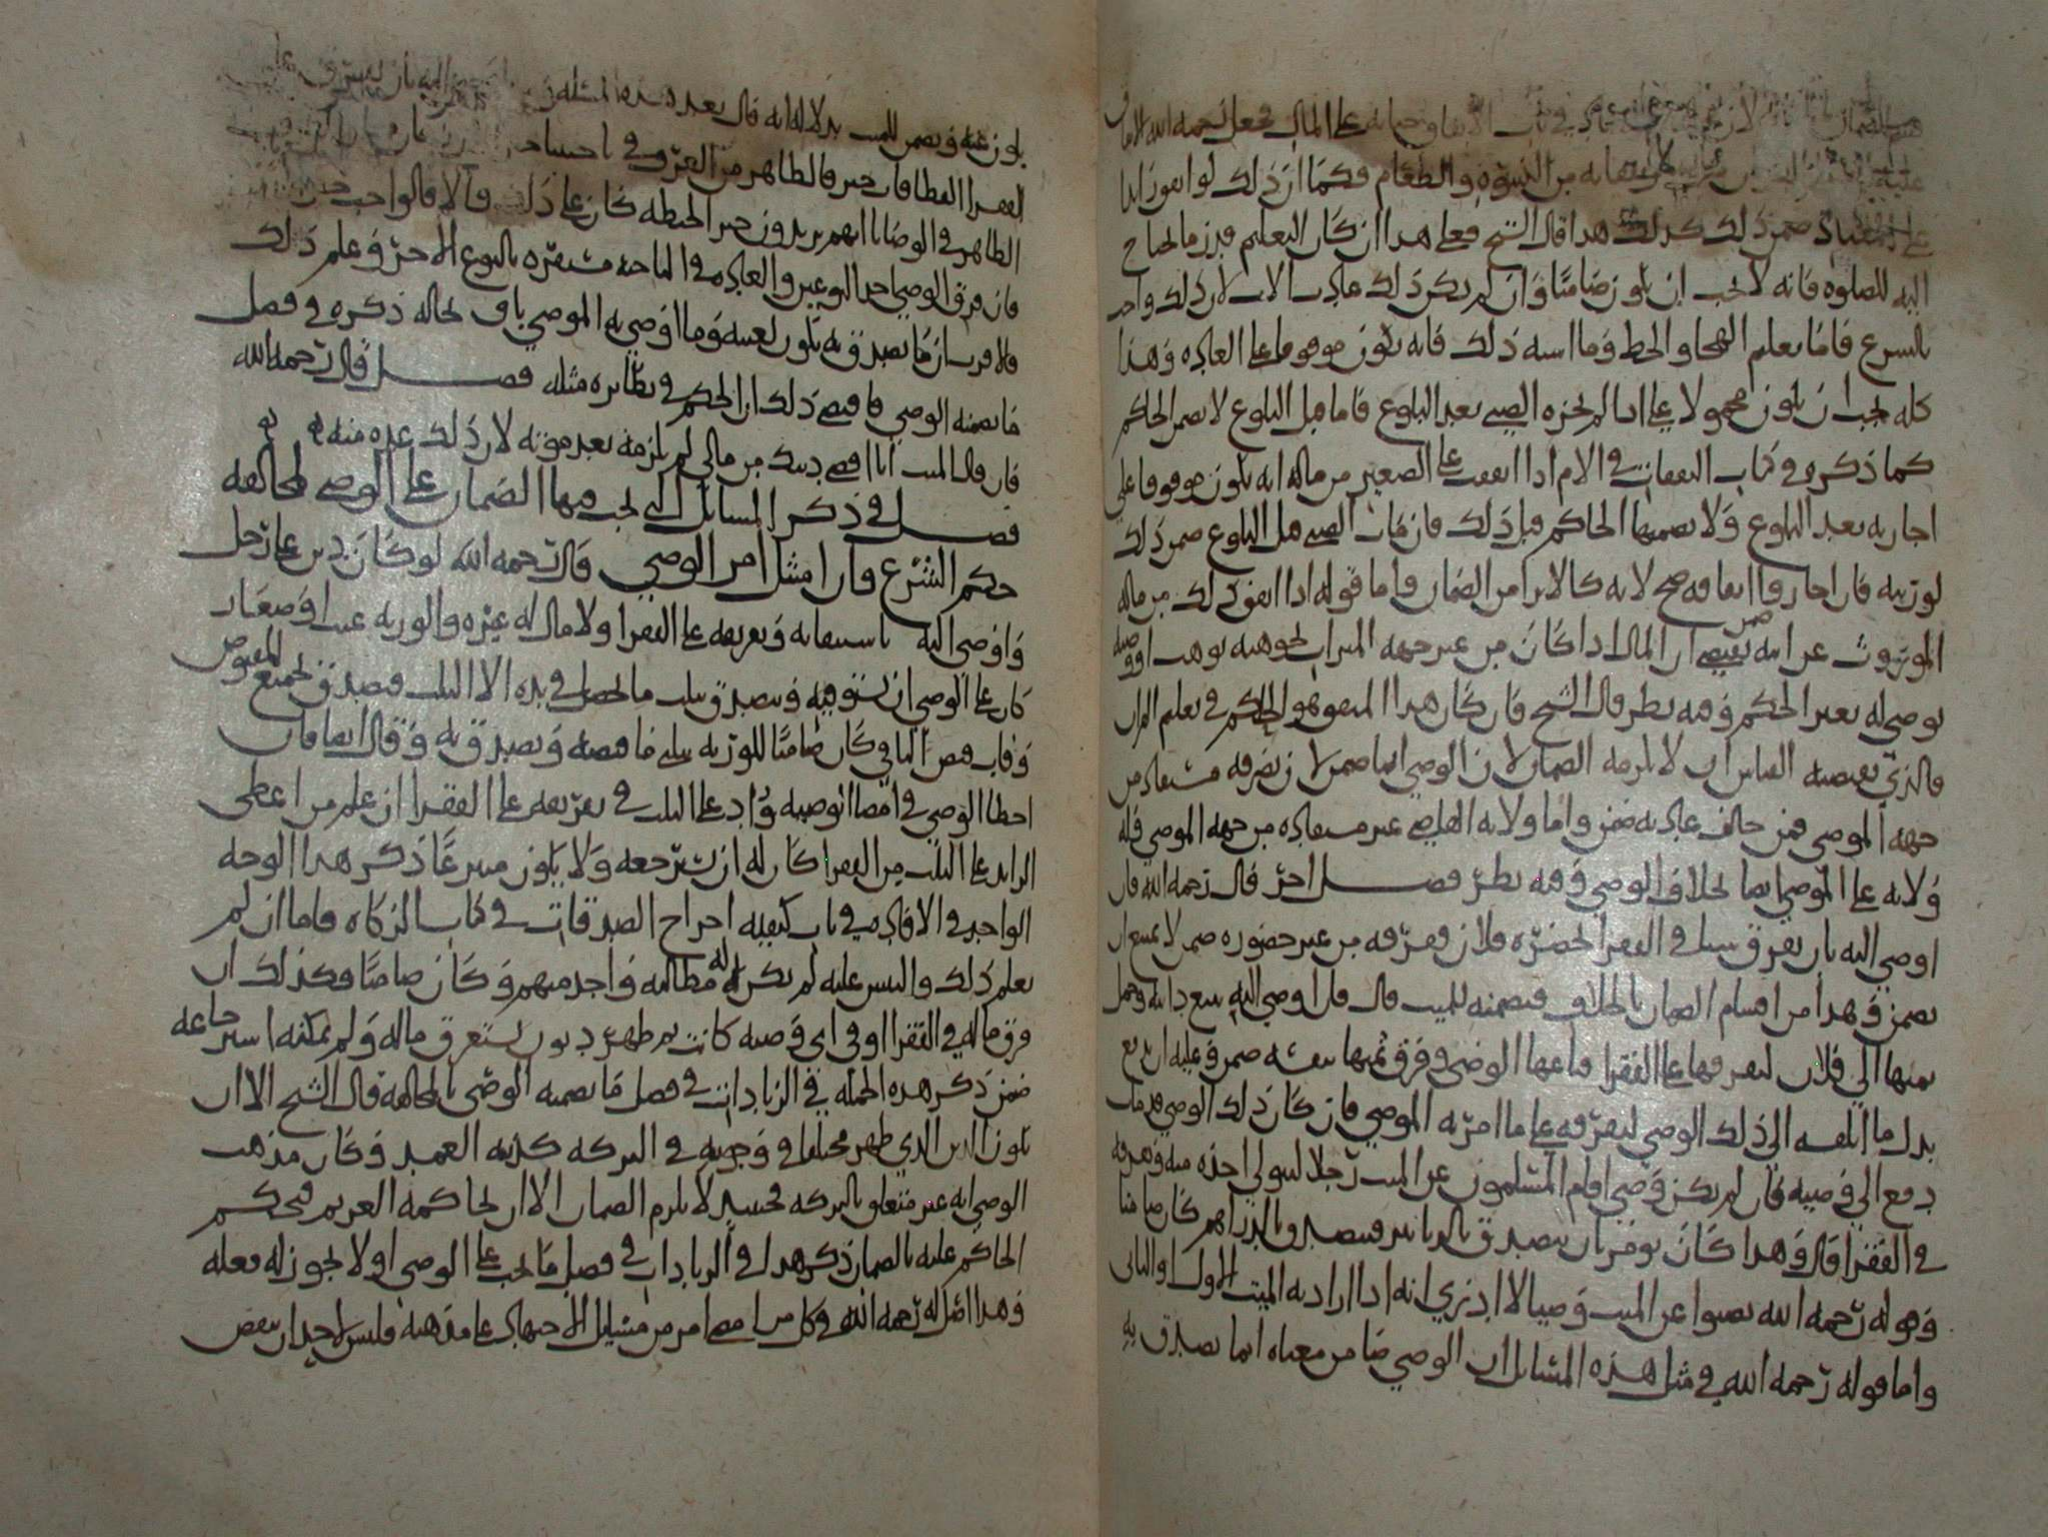 على المال فجعل رحمه الله الانفاق
من الكسوة والطعام فكما ان ذلك لو انفق زايدا
على المعتاد ضمن ذلك كذلك هذا قال الشيخ فعلى هذا ان كان التعليم قدر ما يحتاج
اليه للصلوه فانه لا يجب ان يكون ضامنا وان لم يكن ذلك عادة الاب لان ذلك واجب
بالشرع فاما تعليم الهجا والخط وما اشبه ذلك فانه يكون موقوفا على العاده وهذا
كله يجب ان يكون محمولا على اذا لم يجزه الصبي بعد البلوغ فاما قبل البلوغ لا يضمن الحاكم
كما ذكره في كتاب النفقات في الام اذا انفقت على الصغير من ماله انه يكون موقوفا على
اجازته بعد البلوغ ولا يضمنها الحاكم قبل ذلك فان مات الصبي قبل البلوغ ضمن ذلك
لورثته فان اجازوا انفاقه صح لانه كالابرا من الضمان واما قوله اذا انفق ذلك من ماله
الموروث عن ابيه ضمن يقتضي ان المال اذا كان من غير جهه الميراث نحو هبه توهب او وصيه
يوصى له بغير الحكم وفيه نظر قال الشيخ فان كان هذا المنفق هو الحاكم في تعليم القران
فالذي يقتضيه القياس ان لا يلزمه الضمان لان الوصي انما ضمن لان تصرفه مستفاد من
جهه الموصي فمن خالف عادته ضمن واما ولايه القاضي غير مستفاده من جهه الموصي فله
ولايه على الموصي ايضا بخلاف الوصي وفيه نظر فصل اخر قال رحمه الله فان
اوصى اليه بان يفرق شيا في الفقرا بحضره فلان ففرقه من غير حضوره ضمن لا يمتنع ان
يضمن وهذا من اقسام الضمان بالخلاف فيضمنه للميت قال فان اوصى اليه ببيع دابه وحمل
ثمنها الى فلان ليفرقها على الفقرا فباعها الوصي وفرق ثمنها بنفسه ضمن وعليه ان يدفع
بدل ما اتلفه الى ذلك الوصي ليفرقه على ما امر به الموصي فان كان ذلك الوصي قد مات
دفع الى وصيه فان لم يكن وصي اقام المسلمون عن الميت رجلا ليتولى اخذه منه وصرفه
في الفقرا قال وهذا كان يومر بان يتصدق بالدنانير فيتصدق بالدراهم كان ضامنا
وقوله رحمه الله نصبوا عن الميت وصيا لا ادري انه اذا اراد به الميت الاول او الثاني
واما قوله رحمه الله في مثل هذه المسايل ان الوصي ضامن معناه انما تصدق به
يكون عنه ويضمن للميت بدلاله انه قال بعد هذه المسئله
الفقرا
الظاهر في الوصايا انهم يريدون خبز الحنطه كان على ذلك والا فالواجب
فان فرق الوصي احد النوعين والعاده في الناحيه مستقره بالنوع الاخر وعلم ذلك
فالاقرب ان ما تصدق به يكون لنفسه وما اوصى به الموصي باق بحاله ذكره في فصل
ما يضمنه الوصي فاقتضى ذلك ان الحكم في نظايره مثله فصل قال رحمه الله
فان قال الميت انا اقضي دينك من مالي لم يلزمه بعد موته لان ذلك عده منه
فصل في ذكر المسايل التي يجب فيها الضمان على الوصي لمخالفه
حكم الشرع وان امتثل امر الوصي قال رحمه الله لو كان دين على رجل
واوصى اليه باستيفايه وتفريقه على الفقرا ولا مال له غيره والورثه غيب او صغار
كان على الوصي ان يستوفيه ويتصدق بثلث ما يحصل في يده الا الثلث فتصدق بجميع المقبوض
وفات قبض الباقي كان ضامنا للورثه ثلثي ما قبضه وتصدق به وقال ايضا فان
اخطا الوصي في امضا الوصيه وزاد على الثلث في تفريقه على الفقرا ان علم من اعطى
الزايد على الثلث من الفقرا كان له ان يسترجعه ولا يكون متبرعا ذكر هذا الوجه
الواحد في الافاده في باب كيفيه اخراج الصدقات في كتاب الزكاه فاما ان لم
يعلم ذلك والتبس عليه لم يكن له مطالبه واحد منهم وكان ضامنا وكذلك ان
فرق ماله في الفقرا او في اي وصيه كانت ثم ظهر ديون تستغرق ماله ولم يمكنه استرجاعه
ضمن ذكر هذه الجمله في الزيادات في فصل ما يضمنه الوصي بالمخالفه قال الشيخ الا ان
يكون الدين الذي ظهر مختلفا في وجوبه في التركه كديه العمد وكان مذهب
الوصي انه غير متعلق بالتركه فحينيذ لا يلزم الضمان الا ان يحاكمه الغريم فيحكم
الحاكم عليه بالضمان ذكر هذا في الزيادات في فصل ما يجب على الوصي او لا يجوز له فعله
وهذا اصل له رحمه الله في كل من امضى امر من مسايل الاجتهاد على مذهبه فليس لاحد ان ينقض